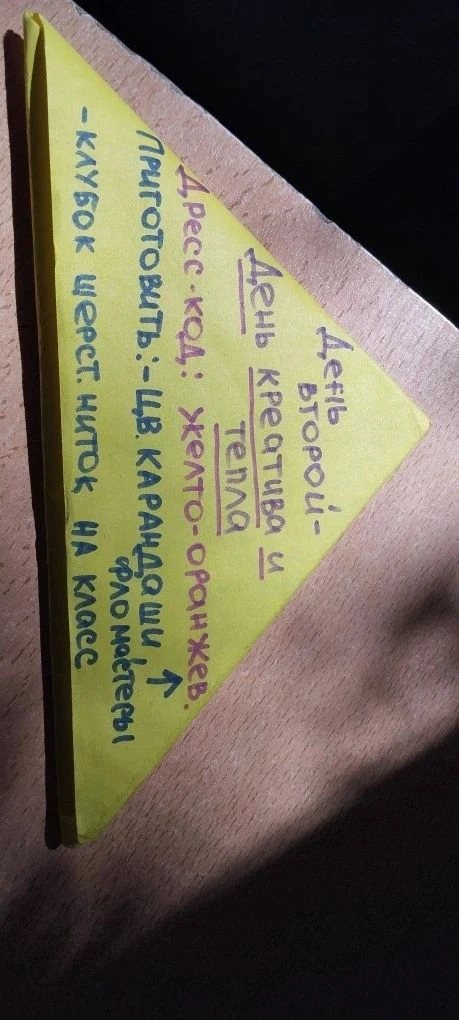 День
второй-
День креатива и
тепла
Дресс-код: желто-оранжев.
Приготовить:-цв. карандаши,
фломастеры
-клубок шерст. ниток на класс